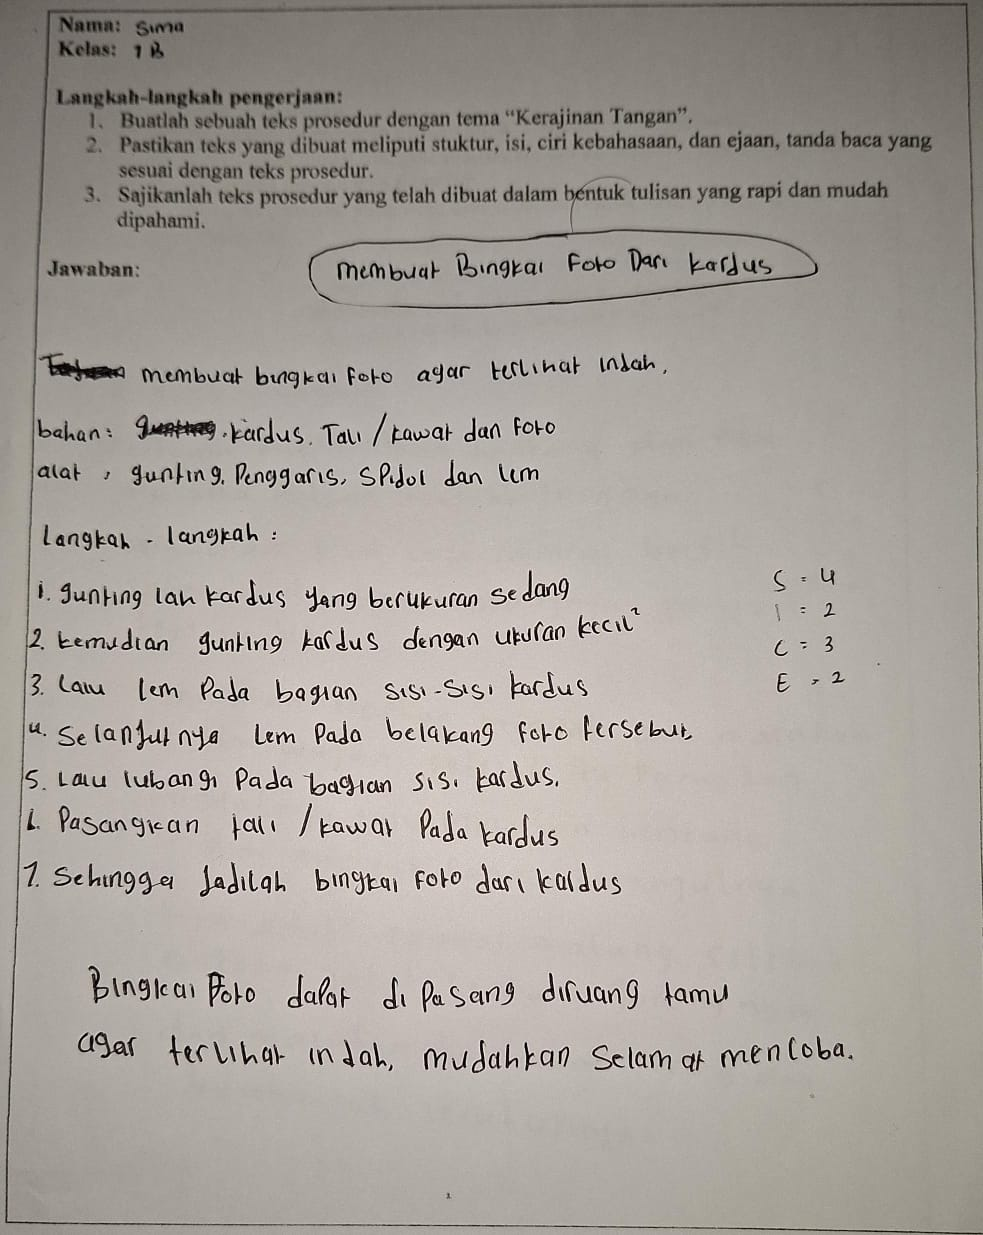 Nama: Sima
Kelas: 7 B
Langkah-langkah pengerjaan:
1. Buatlah sebuah teks prosedur dengan tema “Kerajinan Tangan”.
2. Pastikan teks yang dibuat meliputi stuktur, isi, ciri kebahasaan, dan ejaan, tanda baca yang
sesuai dengan teks prosedur.
3. Sajikanlah teks prosedur yang telah dibuat dalam bentuk tulisan yang rapi dan mudah
dipahami.
Jawaban:
membuat Bingkai Foto Dari kardus
membuat bingkai foto agar terlihat indah,
bahan: kardus, Tali / kawat dan foto
alat, gunting, Penggaris, SPidol dan lem
Langkah - langkah :
1. gunting lah kardus yang berukuran sedang
2. kemudian gunting kardus dengan ukuran kecil²
3. Lalu lem Pada bagian sisi-sisi kardus
4. Selanjutnya Lem Pada belakang foto tersebut
5. Lalu lubangi Pada bagian sisi kardus.
6. Pasangkan tali / kawat Pada kardus
7. Sehingga Jadilah bingkai foto dari kardus
S = 4
I = 2
C = 3
E = 2
Bingkai Foto dapat di Pasang diruang tamu
agar terlihat indah, mudahkan Selamat mencoba.
1